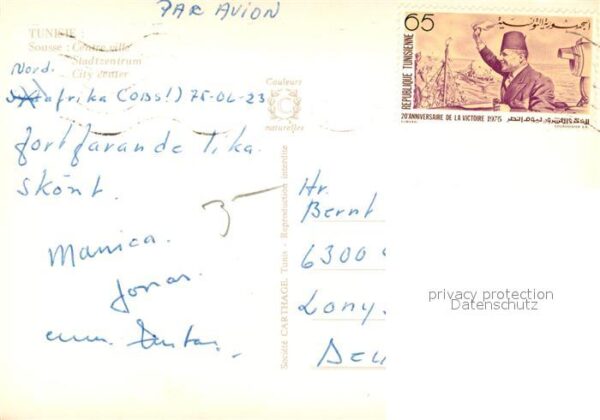 PAR AVION
TUNISIE :
Sousse : Centre ville
Stadtzentrum
City center
Nord.
afrika (OBS!) 75-06-23
fortfarande lika
skönt.
Manica.
Jonas.
Couleurs
naturelles
Société CARTHAGE, Tunis - Reproduction interdite
65
الجمهورية التونسية
REPUBLIQUE TUNISIENNE
20e ANNIVERSAIRE DE LA VICTOIRE 1975
Hr.
Bernt
6300
Lony.
privacy protection
Datenschutz